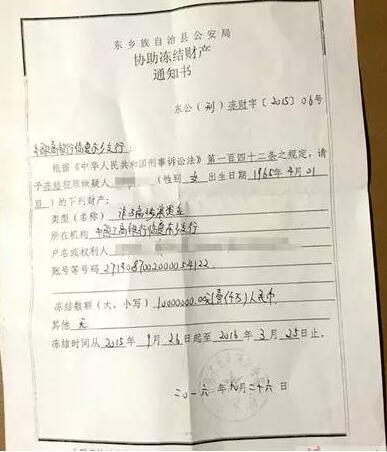 东乡族自治县公安局
协助冻结财产
通知书
东公（刑）冻财字〔2015〕06号
中国工商银行临夏东乡支行：
根据《中华人民共和国刑事诉讼法》第一百四十二条之规定，请
予冻结犯罪嫌疑人（性别 女 出生日期 1965年4月01
日）的下列财产：
类型（名称） 涉案资金
所在机构 中国工商银行临夏东乡支行
户名或权利人
账号等号码
冻结数额（大、小写）10000000.00元（壹仟万）人民币
其他 无
冻结时间从2015年9月26日起至2016年3月25日止。
二〇一 年九月二十六日